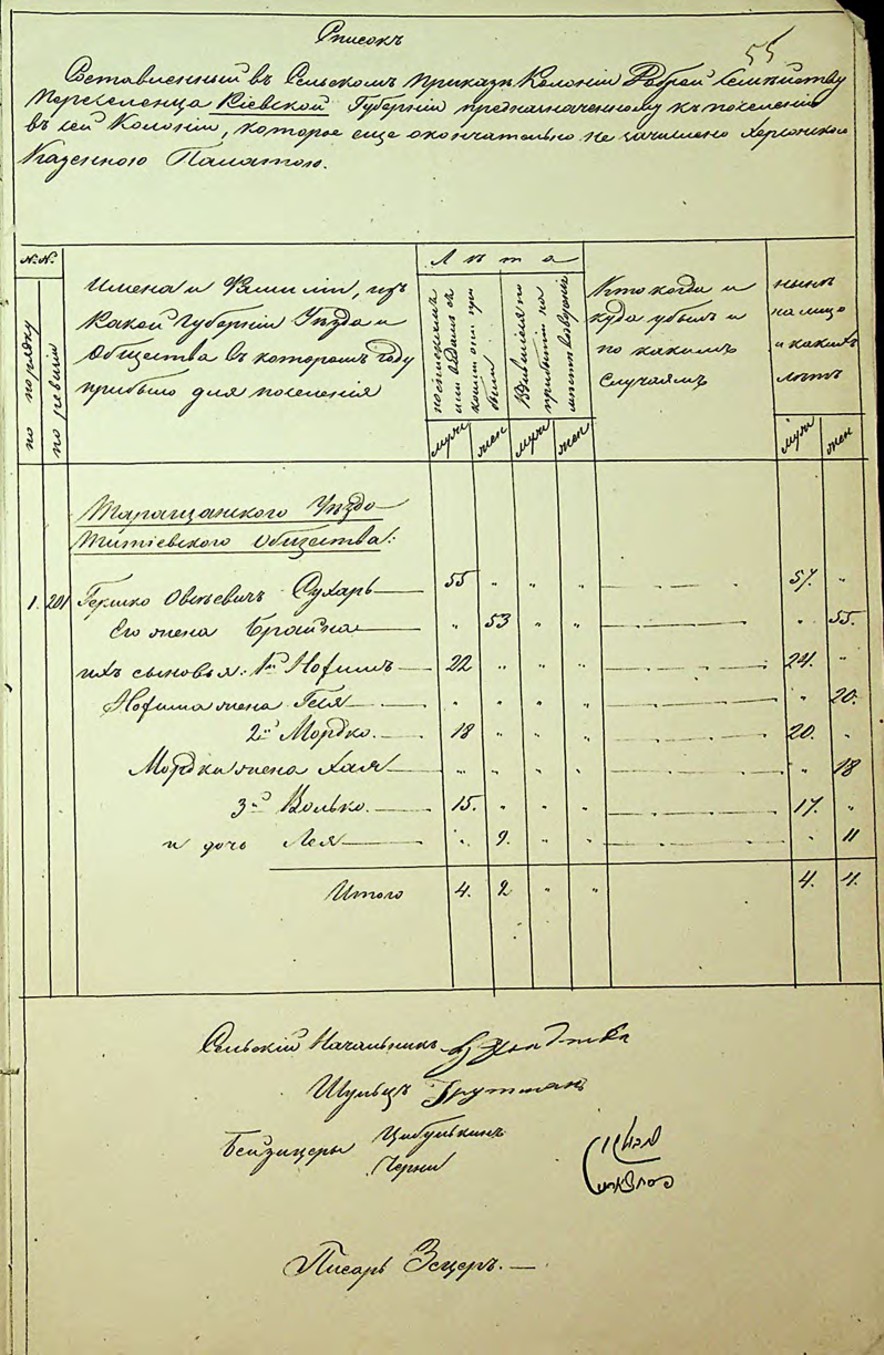 55
Списокъ
Составленный въ Сельскомъ Приказѣ Колоніи Доброй Семейству
Переселенца Кіевской Губерніи предназначенному къ поселенію
въ сей Колоніи, которое еще окончательно не зачислено Херсонскою
Казенною Палатою.
№.№.
по порядку
по ревизіи
Имена и Фамиліи, изъ
какой Губерніи Уѣзда и
Общества въ котором году
прибыло для поселенія
Лѣта
муж
жен
муж
жен
Кто когда и
куда убылъ и
по какимъ
случаямъ
нынѣ
на лицо
и какихъ
лѣтъ
муж
жен
Таращанскаго Уѣзда
Титіевского Общества:
1. 201 Гершко Овсѣевичъ Сухарь 55 " " " 57. "
Его жена Брайна " 53 " " " 55.
ихъ сыновья: 1й Нохимъ 22 " " " 24. "
Нохима жена Геня " " " " " 20.
2й Мордко. 18 " " " 20. "
Мордки жена Хая " " " " " 18
3й Волько. 15. " " " 17. "
и дочь Лея " 9. " " " 11
Итого 4. 2 " " 4. 4.
Сельскій Начальникъ
Шульцъ Грутман
Бейзицеры Цыбулькинъ
Черни
Писарь Эсцеръ.